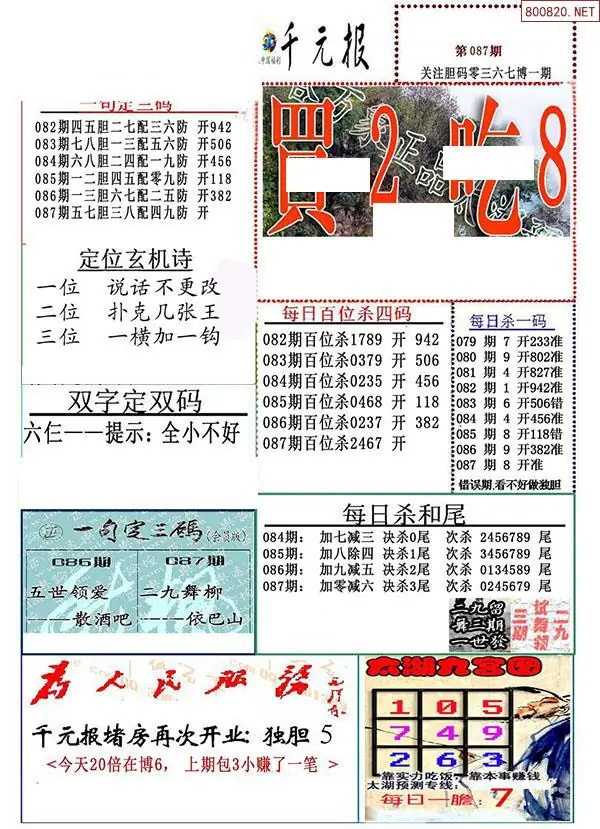 800820.NET
千元报
中国福利
第087期
关注胆码零三六七博一期
一句定三码
082期四五胆二七配三六防 开942
083期七八胆一三配五六防 开506
084期六八胆二四配一九防 开456
085期一二胆四五配零九防 开118
086期一三胆六七配二五防 开382
087期五七胆三八配四九防 开
買2吃8
定位玄机诗
一位 说话不更改
二位 扑克几张王
三位 一横加一钩
每日百位杀四码
082期百位杀1789 开 942
083期百位杀0379 开 506
084期百位杀0235 开 456
085期百位杀0468 开 118
086期百位杀0237 开 382
087期百位杀2467 开
每日杀一码
079 期 7 开233准
080 期 9 开802准
081 期 4 开827准
082 期 1 开942准
083 期 6 开506错
084 期 4 开456准
085 期 8 开118错
086 期 9 开382准
087 期 8 开准
错误期,看不好做独胆
双字定双码
六仨——提示:全小不好
每日杀和尾
084期: 加七减三 决杀0尾 次杀 2456789 尾
085期: 加八除四 决杀1尾 次杀 3456789 尾
086期: 加九减五 决杀2尾 次杀 0134589 尾
087期: 加零减六 决杀3尾 次杀 0245679 尾
正 一句定三碼(会员版)
086期 087期
五世领爱 二九舞柳
——散酒吧 ——依巴山
三九留
舞三期
一世發
二九
试舞领
三期
为人民服务
千元报堵房再次开业:独胆 5
<今天20倍在博6, 上期包3小赚了一笔 >
太湖九宫图
1 0 5
7 4 9
2 6 3
靠实力吃饭, 靠本事赚钱
太湖预测专线:
每日一膽: 7